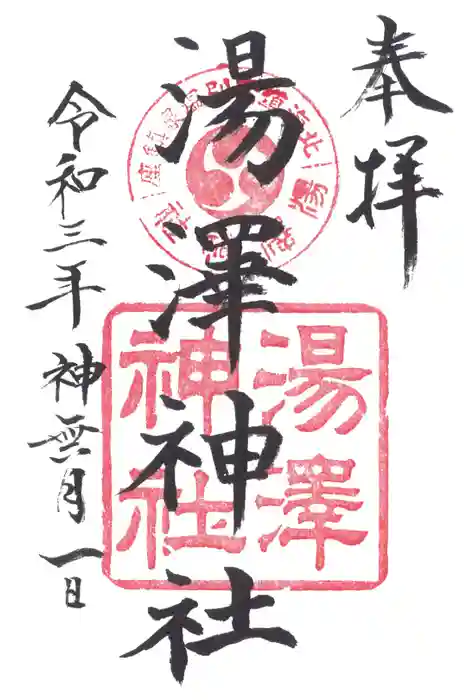 奉拝
湯澤神社
令和三年神無月一日
湯澤
神社